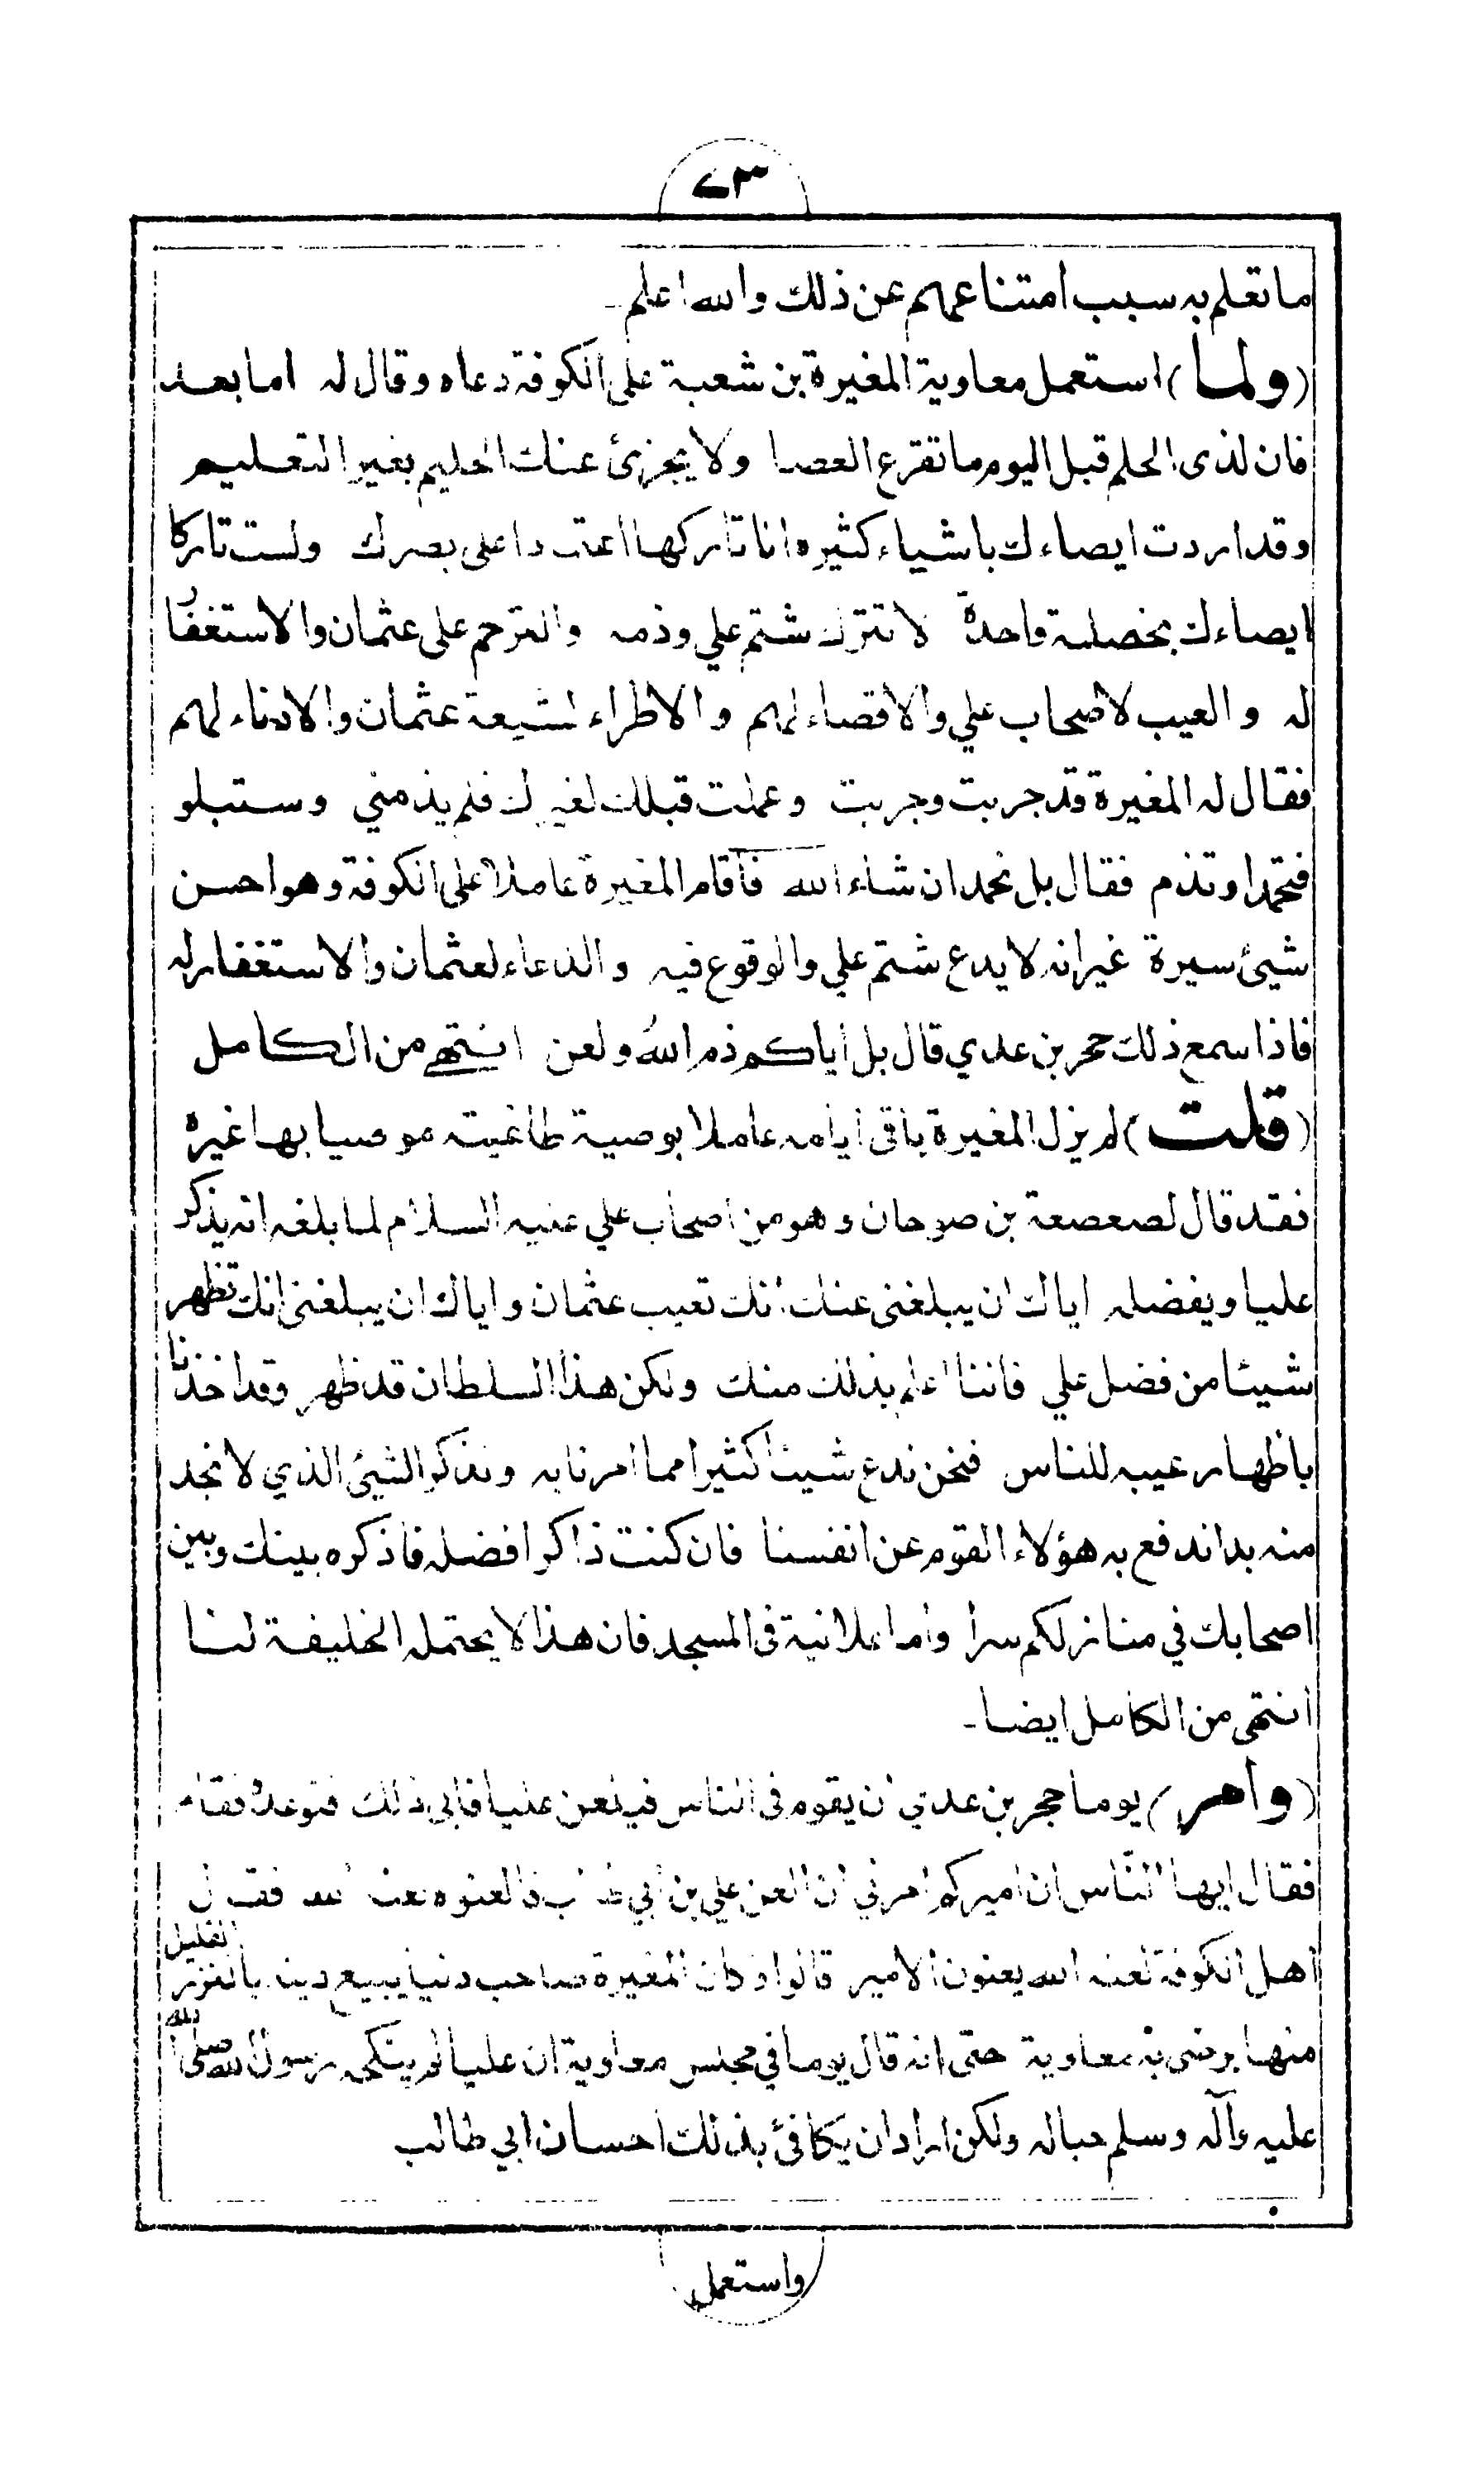 ٧٣
ما تعلم به سبب امتناعهم عن ذلك والله اعلم
(ولما) استعمل معاوية المغيرة بن شعبة على الكوفة دعاه وقال له اما بعد
فان لذى الحلم قبل اليوم ما تقرع العصا ولا يجزئ عنك الحليم بغير التعليم
وقد اردت ايصاءك باشياء كثيره انا تاركها اعتمادا على بصرك ولست تاركا
ايصاءك بخصلة واحدة لا تترك شتم علي وذمه والترحم على عثمان والاستغفار
له والعيب لاصحاب علي والاقصاء لهم والاطراء لشيعة عثمان والادناء لهم
فقال له المغيرة قد جربت وجربت وعملت قبلك لغيرك فلم يذمني وستبلو
فتحمد او تذم فقال بل نحمد ان شاء الله فأقام المغيرة عاملا على الكوفة وهو احسن
شيئ سيرة غير انه لا يدع شتم علي والوقوع فيه والدعاء لعثمان والاستغفار له
فاذا سمع ذلك حجر بن عدي قال بل اياكم ذم الله ولعن انتهى من الكامل
(قلت) لم يزل المغيرة باقى ايامه عاملا بوصية طاغيته موصيا بها غيره
فقد قال لصعصعة بن صوحان وهو من اصحاب علي عليه السلام لما بلغه انه يذكر
عليا ويفضله اياك ان يبلغنى عنك انك تعيب عثمان واياك ان يبلغنى انك تظهر
شيئا من فضل علي فاننا اعلم بذلك منك ولكن هذا السلطان قد ظهر وقد اخذنا
باظهار عيبه للناس فنحن ندع شيئا كثيرا مما امرنا به ونذكر الشيئ الذي لا نجد
منه بدا ندفع به هؤلاء القوم عن انفسنا فان كنت ذاكرا فضله فاذكره بينك وبين
اصحابك في منازلكم سرا واما علانية فى المسجد فان هذا لا يحتمله الخليفة لنا
انتهى من الكامل ايضا
(وأمر) يوما حجر بن عدي ان يقوم فى الناس فيلعن عليا فابى ذلك فتوعده فقام
فقال ايها الناس ان اميركم امرني ان العن علي بن ابي طالب فالعنوه لعنه الله فقال
اهل الكوفة لعنه الله يعنون الامير قالوا وكان المغيرة صاحب دنيا يبيع دينه بالنزر القليل
منها يرضى به معاوية حتى انه قال يوما في مجلس معاوية ان عليا لم ينكحه رسول الله صلى الله
عليه وآله وسلم حبا له ولكن اراد ان يكافئ بذلك احسان ابي طالب
واستعمل